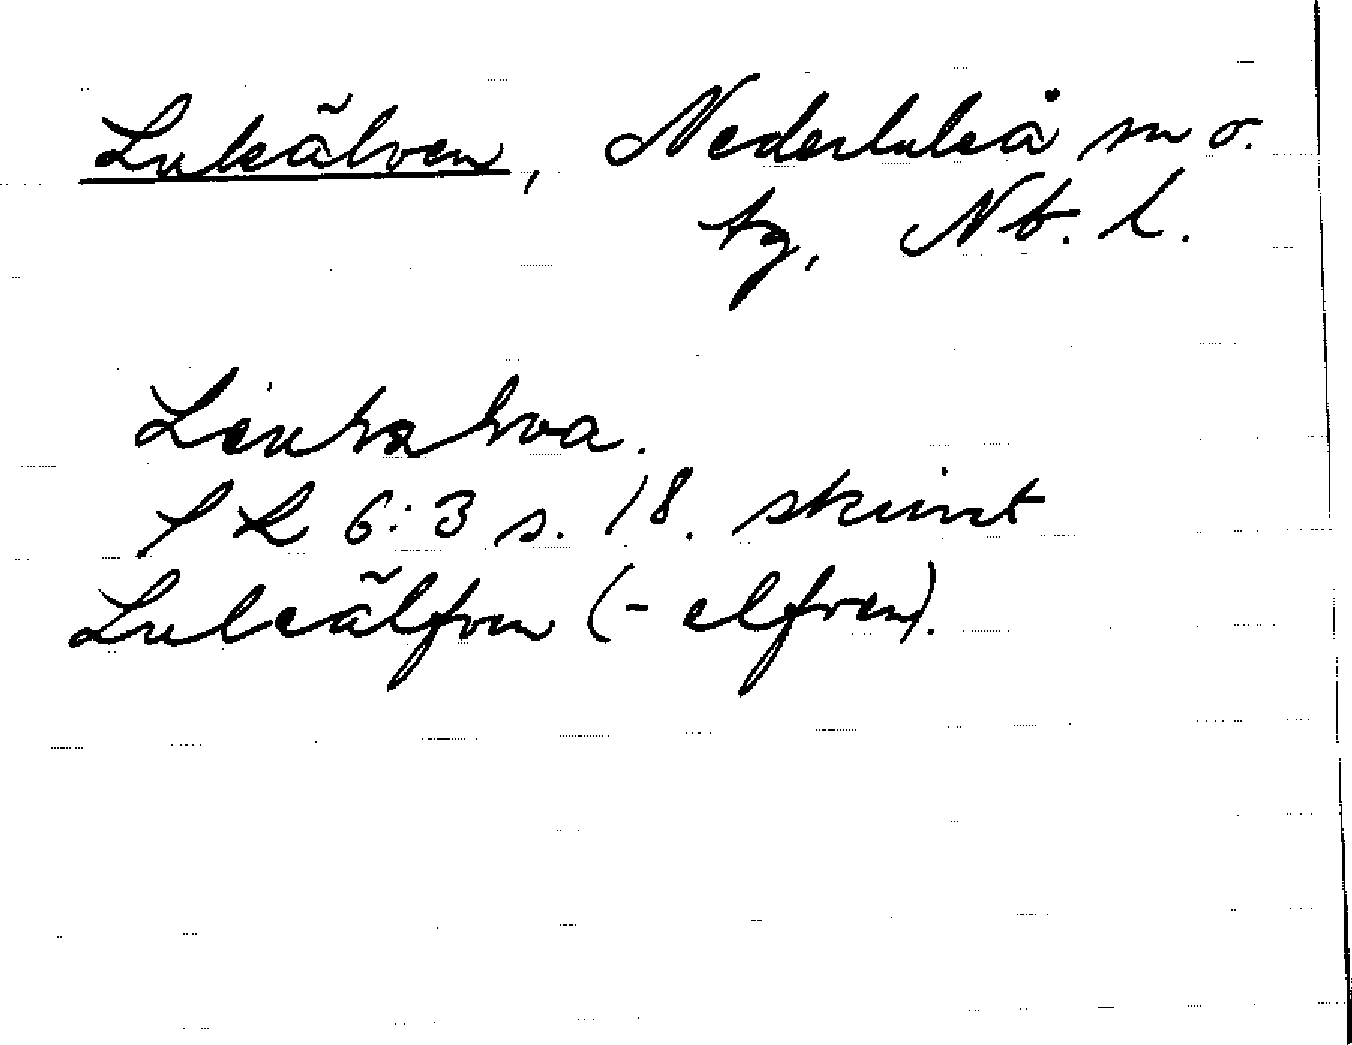 Luleälven, Nederluleå m o.
tg, Nb. l.
SL 6:3 s. 18. skrivet
Luleälfven (- elfven).